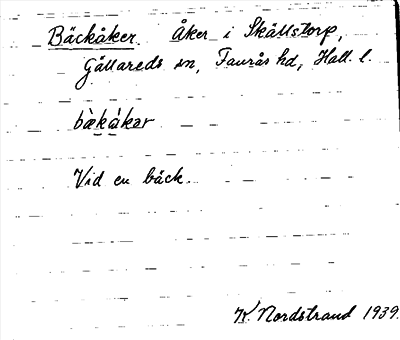 Bäckåker. Åker i Skällstorp,
Gällareds sn, Faurås hd, Hall. l.
bækåkər
Vid en bäck.
K. Nordstrand 1939.